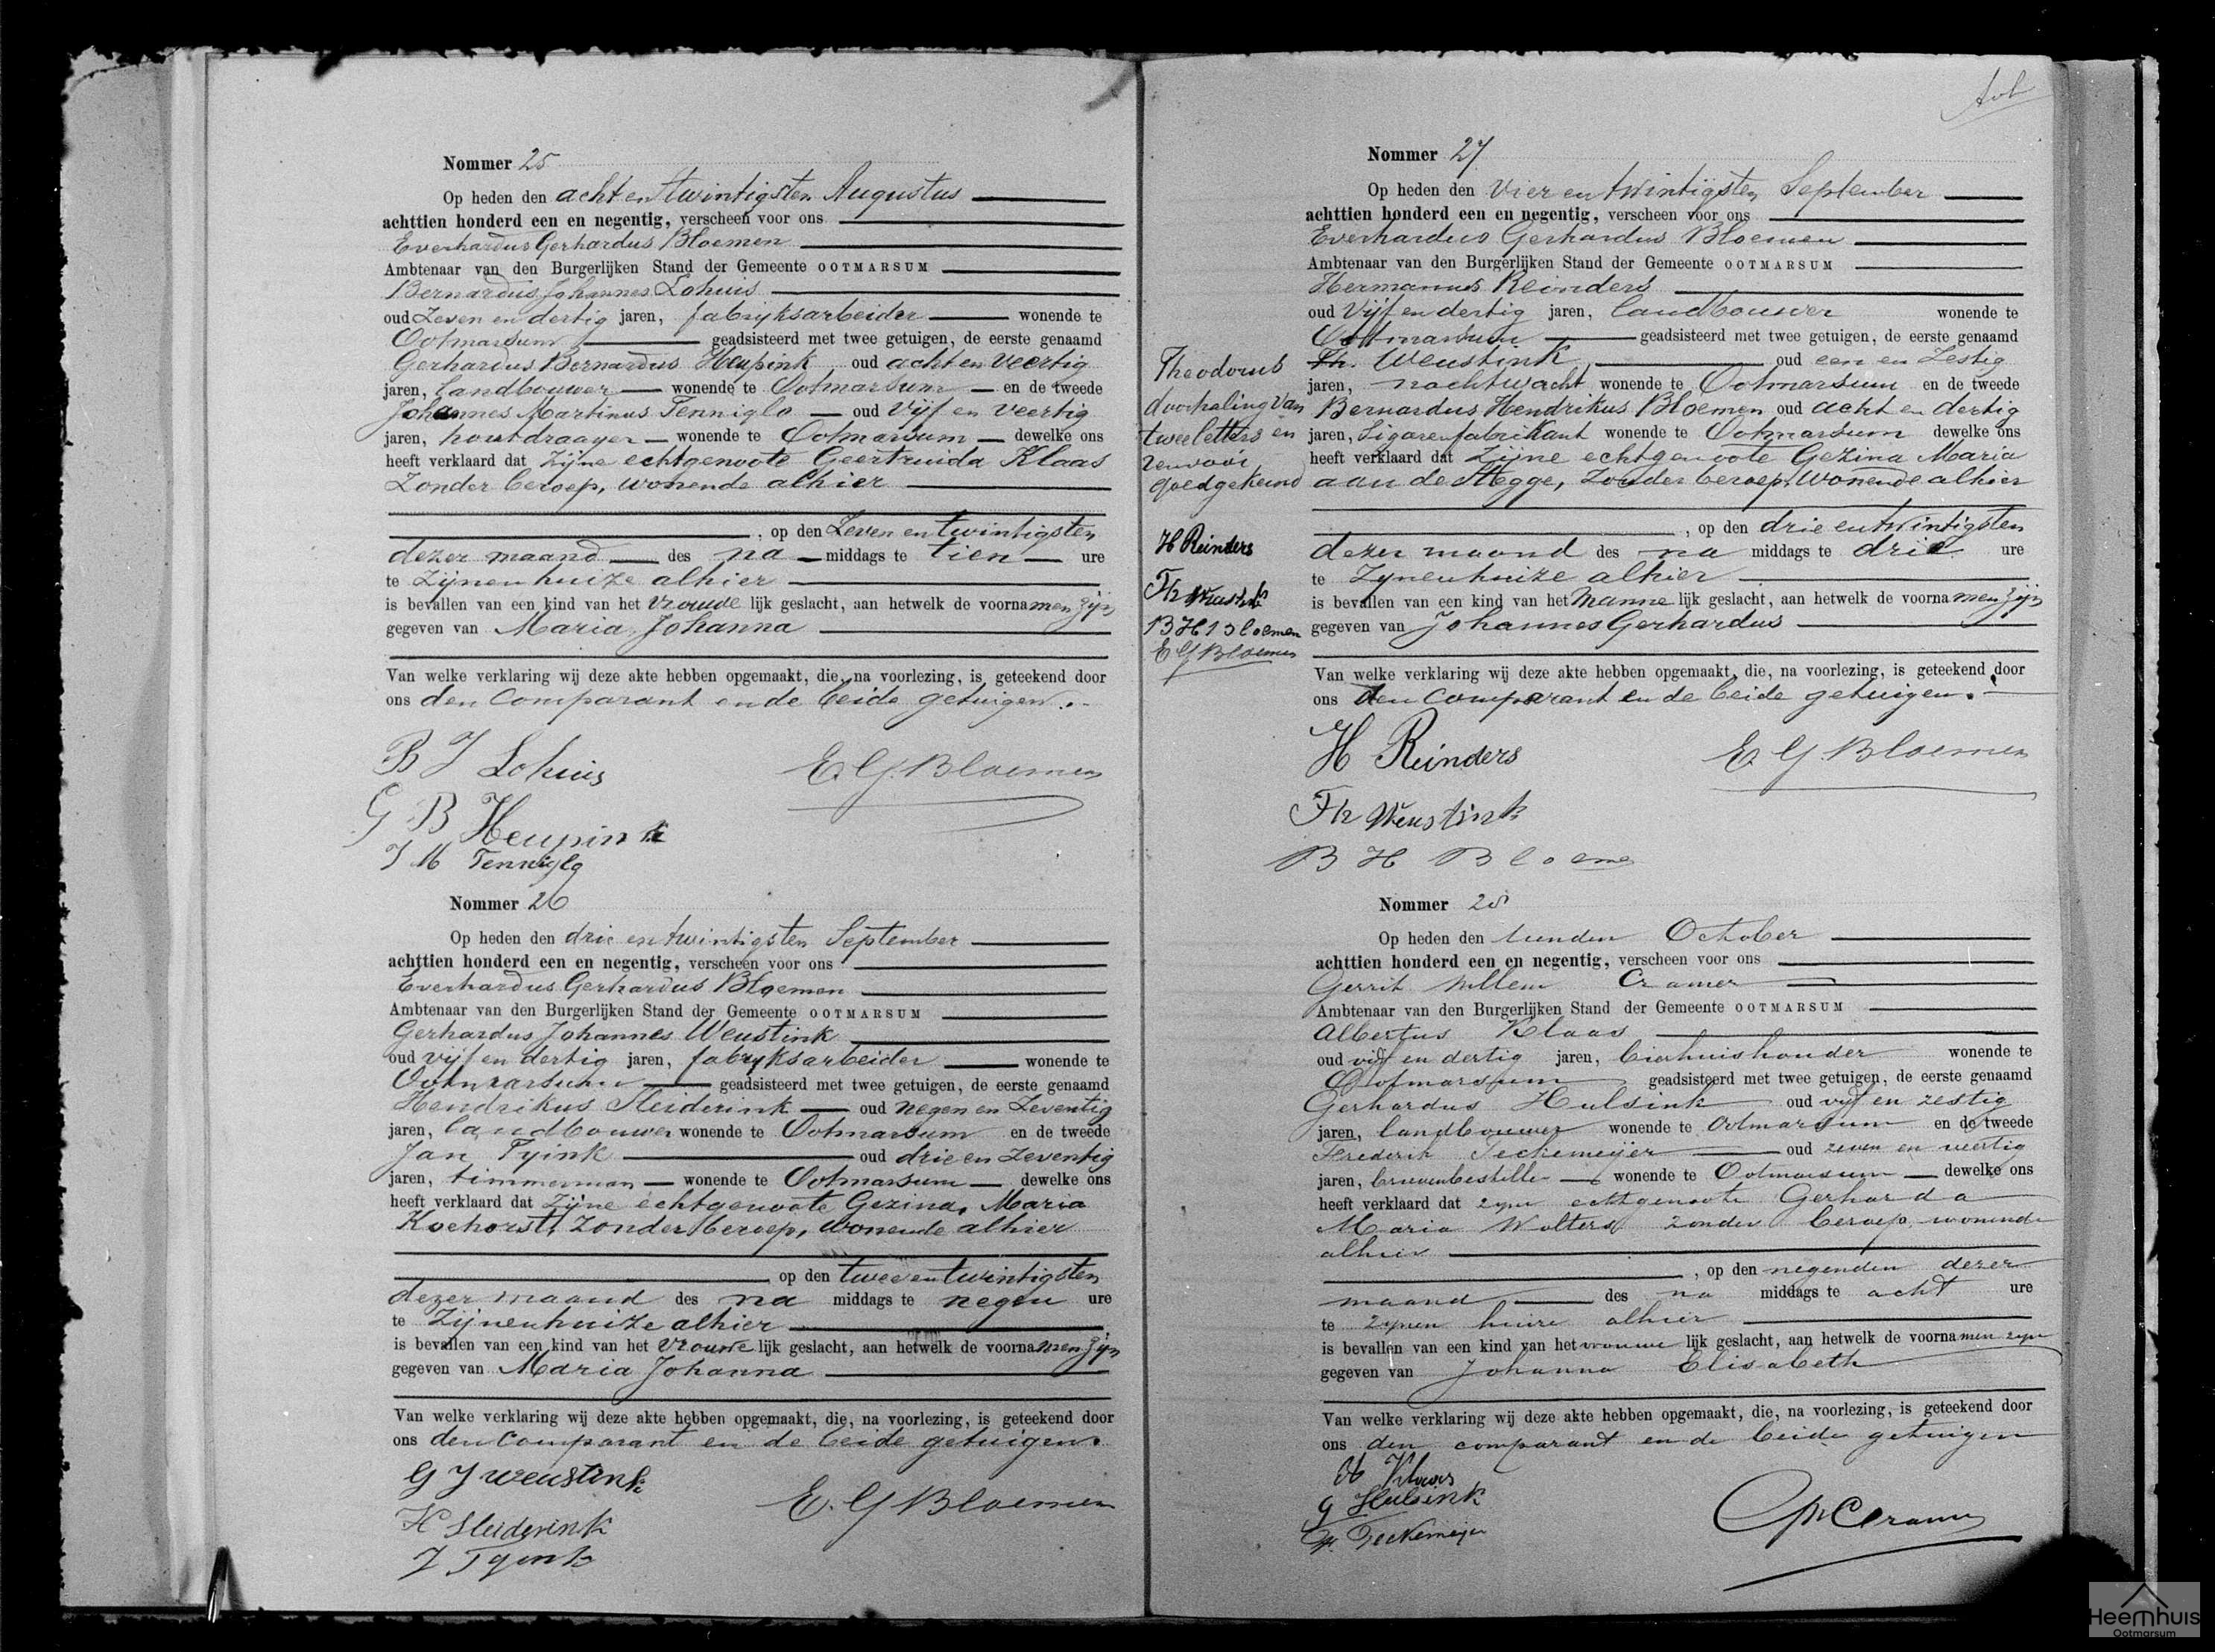 Nommer 25
Op heden den acht en twintigsten Augustus
achttien honderd een en negentig, verscheen voor ons
Everhardus Gerhardus Bloemen
Ambtenaar van den Burgerlijken Stand der Gemeente OOTMARSUM
Bernardus Johannes Lohuis
oud Zeven en dertig jaren, fabrijksarbeider wonende te
Ootmarsum geadsisteerd met twee getuigen, de eerste genaamd
Gerhardus Bernardus Heupink oud acht en Veertig
jaren, landbouwer wonende te Ootmarsum en de tweede
Johannes Martinus Tenniglo oud Vijf en Veertig
jaren, houtdraayer wonende te Ootmarsum dewelke ons
heeft verklaard dat Zijne echtgenoote Geertruida Klaas
Zonder beroep, wonende alhier
, op den Zeven en twintigsten
dezer maand des na middags te tien ure
te Zijnen huize alhier
is bevallen van een kind van het vrouwe lijk geslacht, aan hetwelk de voornamen zijn
gegeven van Maria Johanna
Van welke verklaring wij deze akte hebben opgemaakt, die, na voorlezing, is geteekend door
ons den Comparant en de beide getuigen.
B J Lohuis E. G. Bloemen
G B Heupink
J M Tenniglo
Nommer 26
Op heden den drie en twintigsten September
achttien honderd een en negentig, verscheen voor ons
Everhardus Gerhardus Bloemen
Ambtenaar van den Burgerlijken Stand der Gemeente OOTMARSUM
Gerhardus Johannes Weustink
oud vijf en dertig jaren, fabryksarbeider wonende te
Ootmarsum geadsisteerd met twee getuigen, de eerste genaamd
Hendrikus Sleiderink oud negen en Zeventig
jaren, landbouwer wonende te Ootmarsum en de tweede
Jan Tyink oud drie en Zeventig
jaren, timmerman wonende te Ootmarsum dewelke ons
heeft verklaard dat Zijne echtgenoote Gezina Maria
Kochorst, Zonder beroep, wonende alhier
op den twee en twintigsten
dezer maand des na middags te negen ure
te Zijnen huize alhier
is bevallen van een kind van het vrouwe lijk geslacht, aan hetwelk de voornamen zijn
gegeven van Maria Johanna
Van welke verklaring wij deze akte hebben opgemaakt, die, na voorlezing, is geteekend door
ons den Comparant en de beide getuigen.
G J Weustink
E. G Bloemen
H Sleiderink
J Tyink
Nommer 27
Op heden den Vier en twintigsten September
achttien honderd een en negentig, verscheen voor ons
Everhardus Gerhardus Bloemen
Ambtenaar van den Burgerlijken Stand der Gemeente OOTMARSUM
Hermannus Reinders
oud Vijf en dertig jaren, landbouwer wonende te
Ootmarsum geadsisteerd met twee getuigen, de eerste genaamd
Th. Weustink oud een en Zestig
jaren, nachtwacht wonende te Ootmarsum en de tweede
Bernardus Hendrikus Bloemen oud acht en dertig
jaren, Sigarenfabrikant wonende te Ootmarsum dewelke ons
heeft verklaard dat Zijne echtgenoote Gezina Maria
aan de Stegge, Zonder beroep, wonende alhier
, op den drie en twintigsten
dezer maand des na middags te drie ure
te Zynen huize alhier
is bevallen van een kind van het Manne lijk geslacht, aan hetwelk de voornamen zijn
gegeven van Johannes Gerhardus
Van welke verklaring wij deze akte hebben opgemaakt, die, na voorlezing, is geteekend door
ons den Comparant en de beide getuigen.
Theodorus
doorhaling van
twee letters en
renvooi
goedgekeurd
H Reinders
Th Weustink
B H Bloemen
E G Bloemen
H Reinders E. G. Bloemen
Th Weustink
B H Bloemen
Nommer 28
Op heden den tienden October
achttien honderd een en negentig, verscheen voor ons
Gerrit Willem Cramer
Ambtenaar van den Burgerlijken Stand der Gemeente OOTMARSUM
Albertus Klaas
oud vijf en dertig jaren, bierhuishouder wonende te
Ootmarsum geadsisteerd met twee getuigen, de eerste genaamd
Gerhardus Hulsink oud vijf en zestig
jaren, landbouwer wonende te Ootmarsum en de tweede
Frederik Teckemeijer oud zeven en veertig
jaren, brievenbesteller wonende te Ootmarsum dewelke ons
heeft verklaard dat zyne echtgenoote Gerharda
Maria Wolters zonder beroep, wonende
alhier
, op den negenden dezer
maand des na middags te acht ure
te zynen huize alhier
is bevallen van een kind van het vrouwe lijk geslacht, aan hetwelk de voornamen zyn
gegeven van Johanna Elisabeth
Van welke verklaring wij deze akte hebben opgemaakt, die, na voorlezing, is geteekend door
ons den comparant en de beide getuigen
Klaas
G Hulsink
Fr. Teckemeijer
Cramer
Heemhuis
Ootmarsum